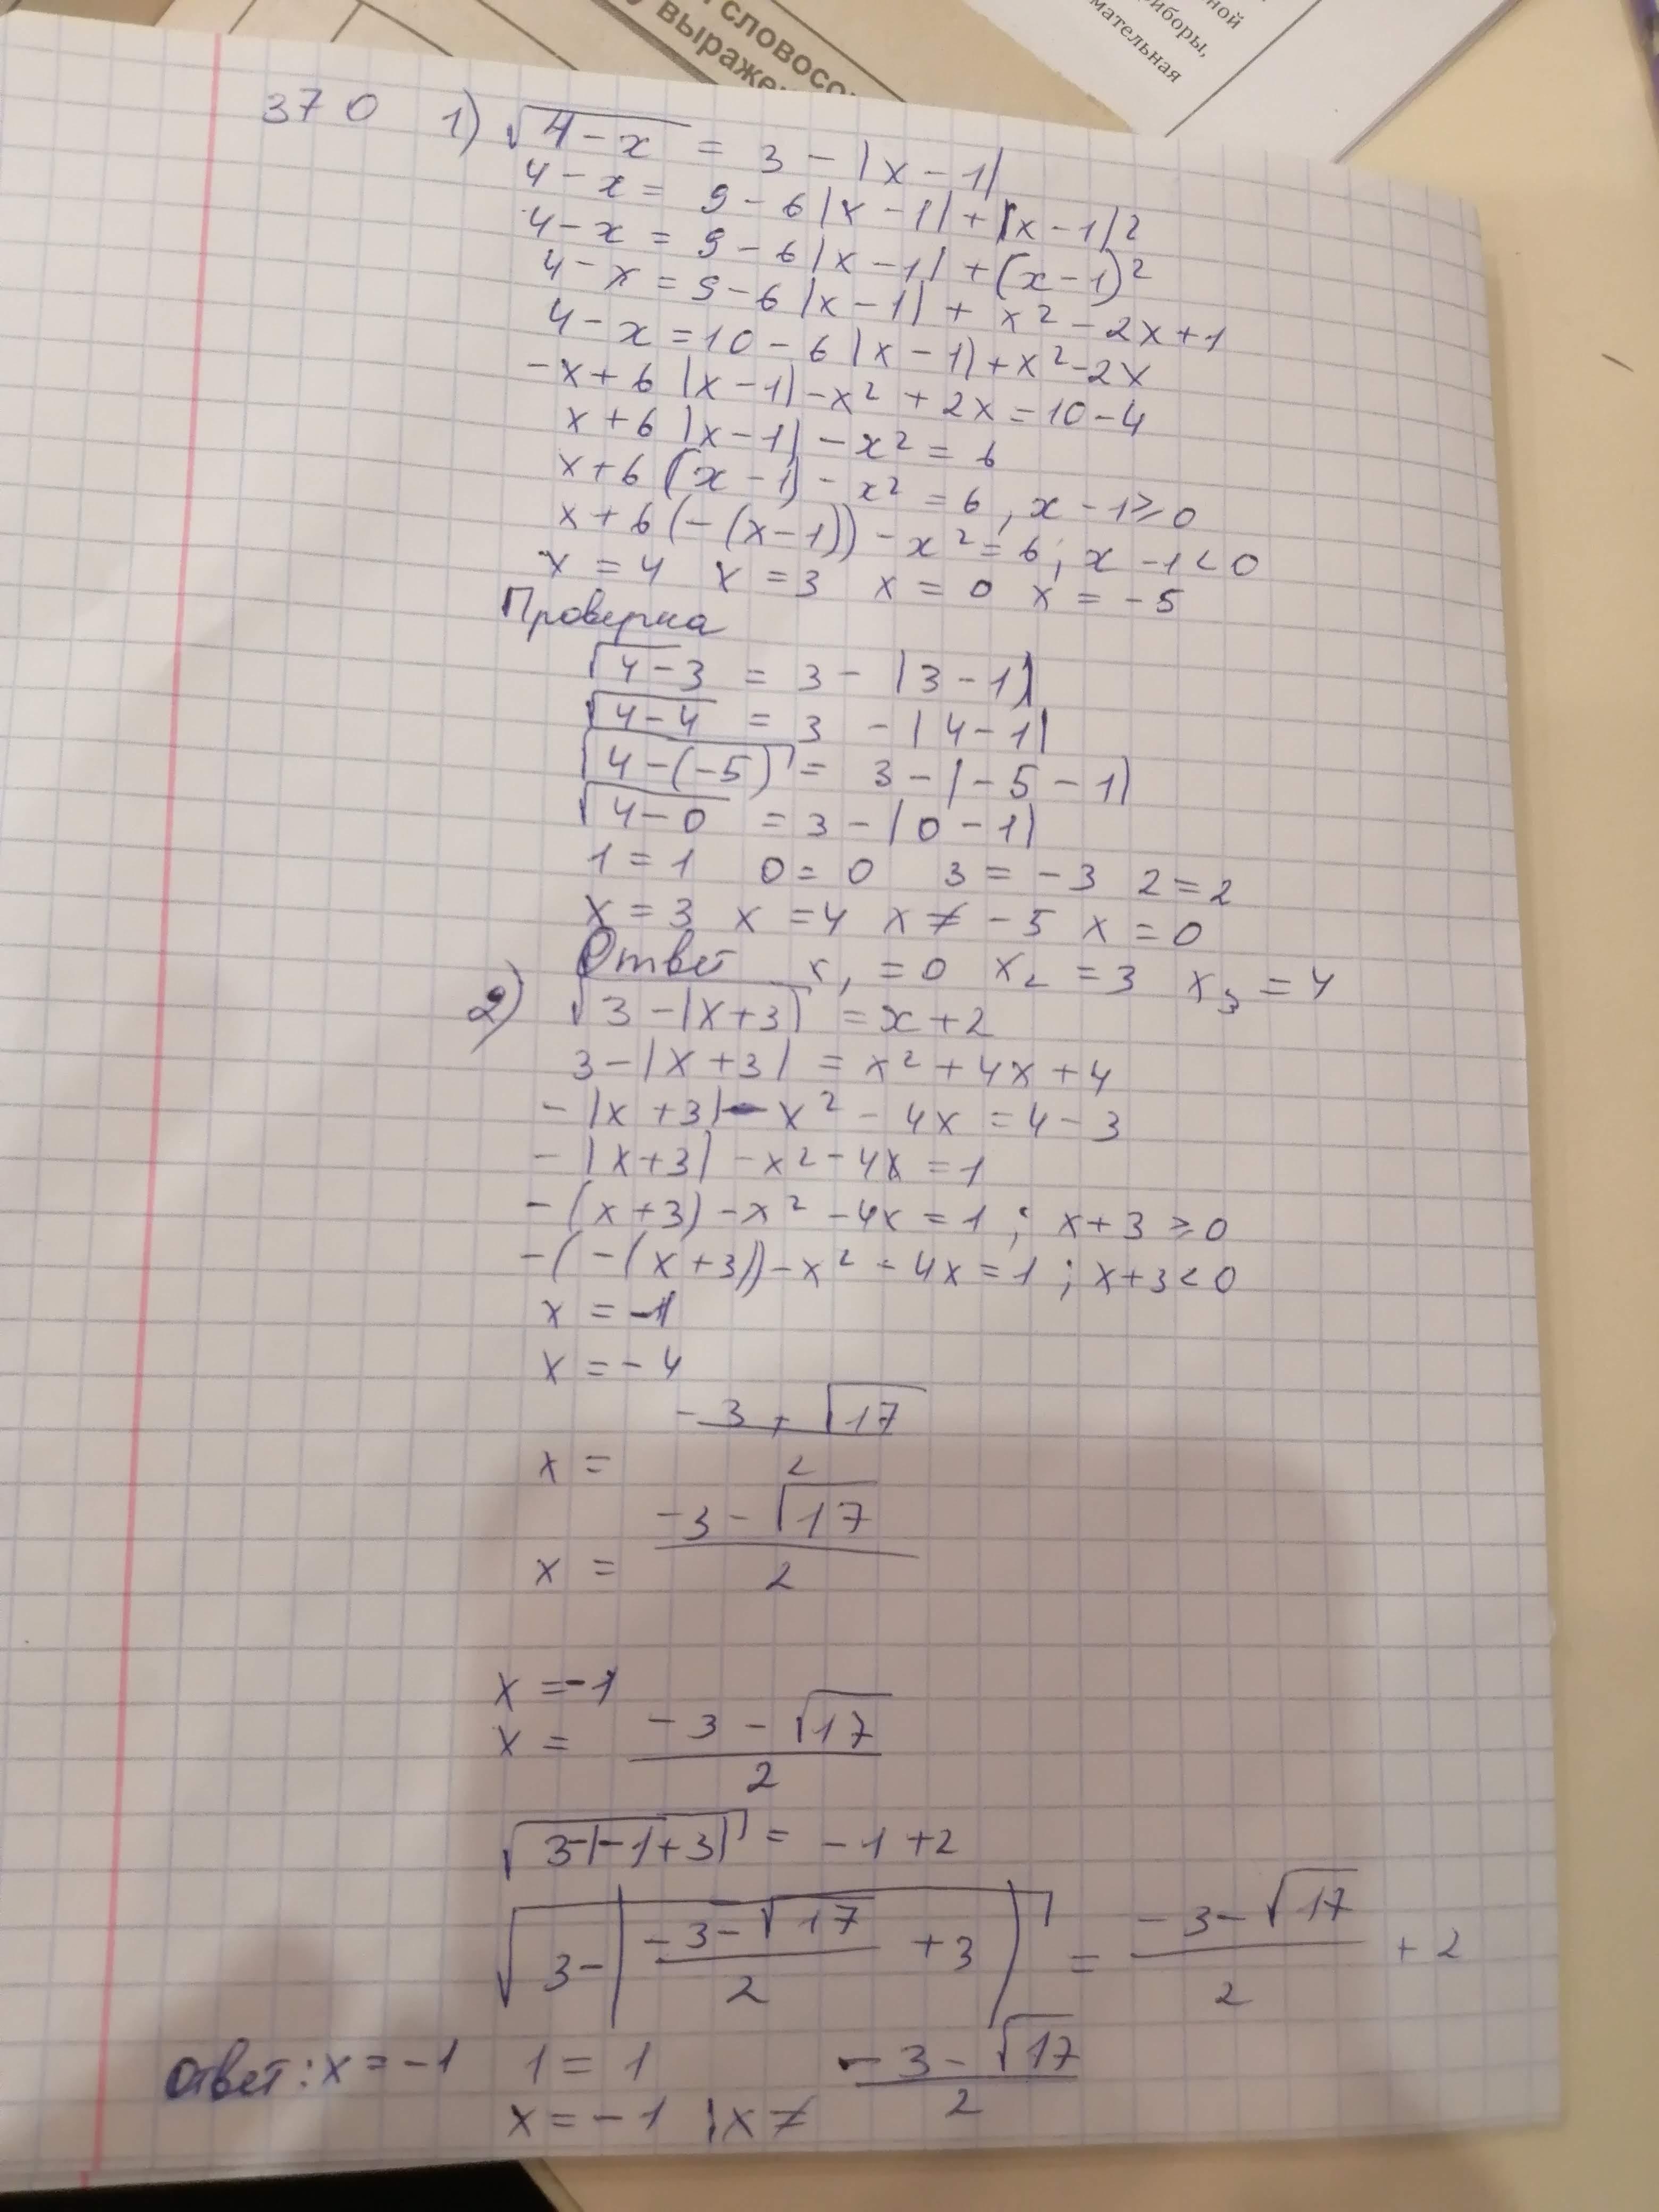 словосо
у выражен
ной
иборы,
мательная
370 1) √4-x = 3-|x-1|
4-x = 9-6|x-1|+|x-1|2
4-x = 9-6|x-1|+(x-1)²
4-x = 9-6|x-1|+x²-2x+1
4-x=10-6|x-1|+x²-2x
-x+6|x-1|-x²+2x=10-4
x+6|x-1|-x²=6
x+6(x-1)-x²=6, x-1≥0
x+6(-(x-1))-x²=6; x-1<0
x=4 x=3 x=0 x=-5
Проверка
√4-3 = 3-|3-1|
√4-4 = 3-|4-1|
√4-(-5) = 3-|-5-1|
√4-0 = 3-|0-1|
1=1 0=0 3=-3 2=2
x=3 x=4 x≠-5 x=0
Ответ x₁=0 x₂=3 x₃=4
2) √3-|x+3| = x+2
3-|x+3| = x²+4x+4
-|x+3|-x²-4x=4-3
-|x+3|-x²-4x=1
-(x+3)-x²-4x=1; x+3≥0
-(-(x+3))-x²-4x=1; x+3<0
x=-1
x=-4
x = (-3+√17)/2
x = (-3-√17)/2
x=-1
x = (-3-√17)/2
√3-|-1+3| = -1+2
√3-|(-3-√17)/2 +3| = (-3-√17)/2 + 2
Ответ: x=-1 1=1
x=-1 x≠ (-3-√17)/2